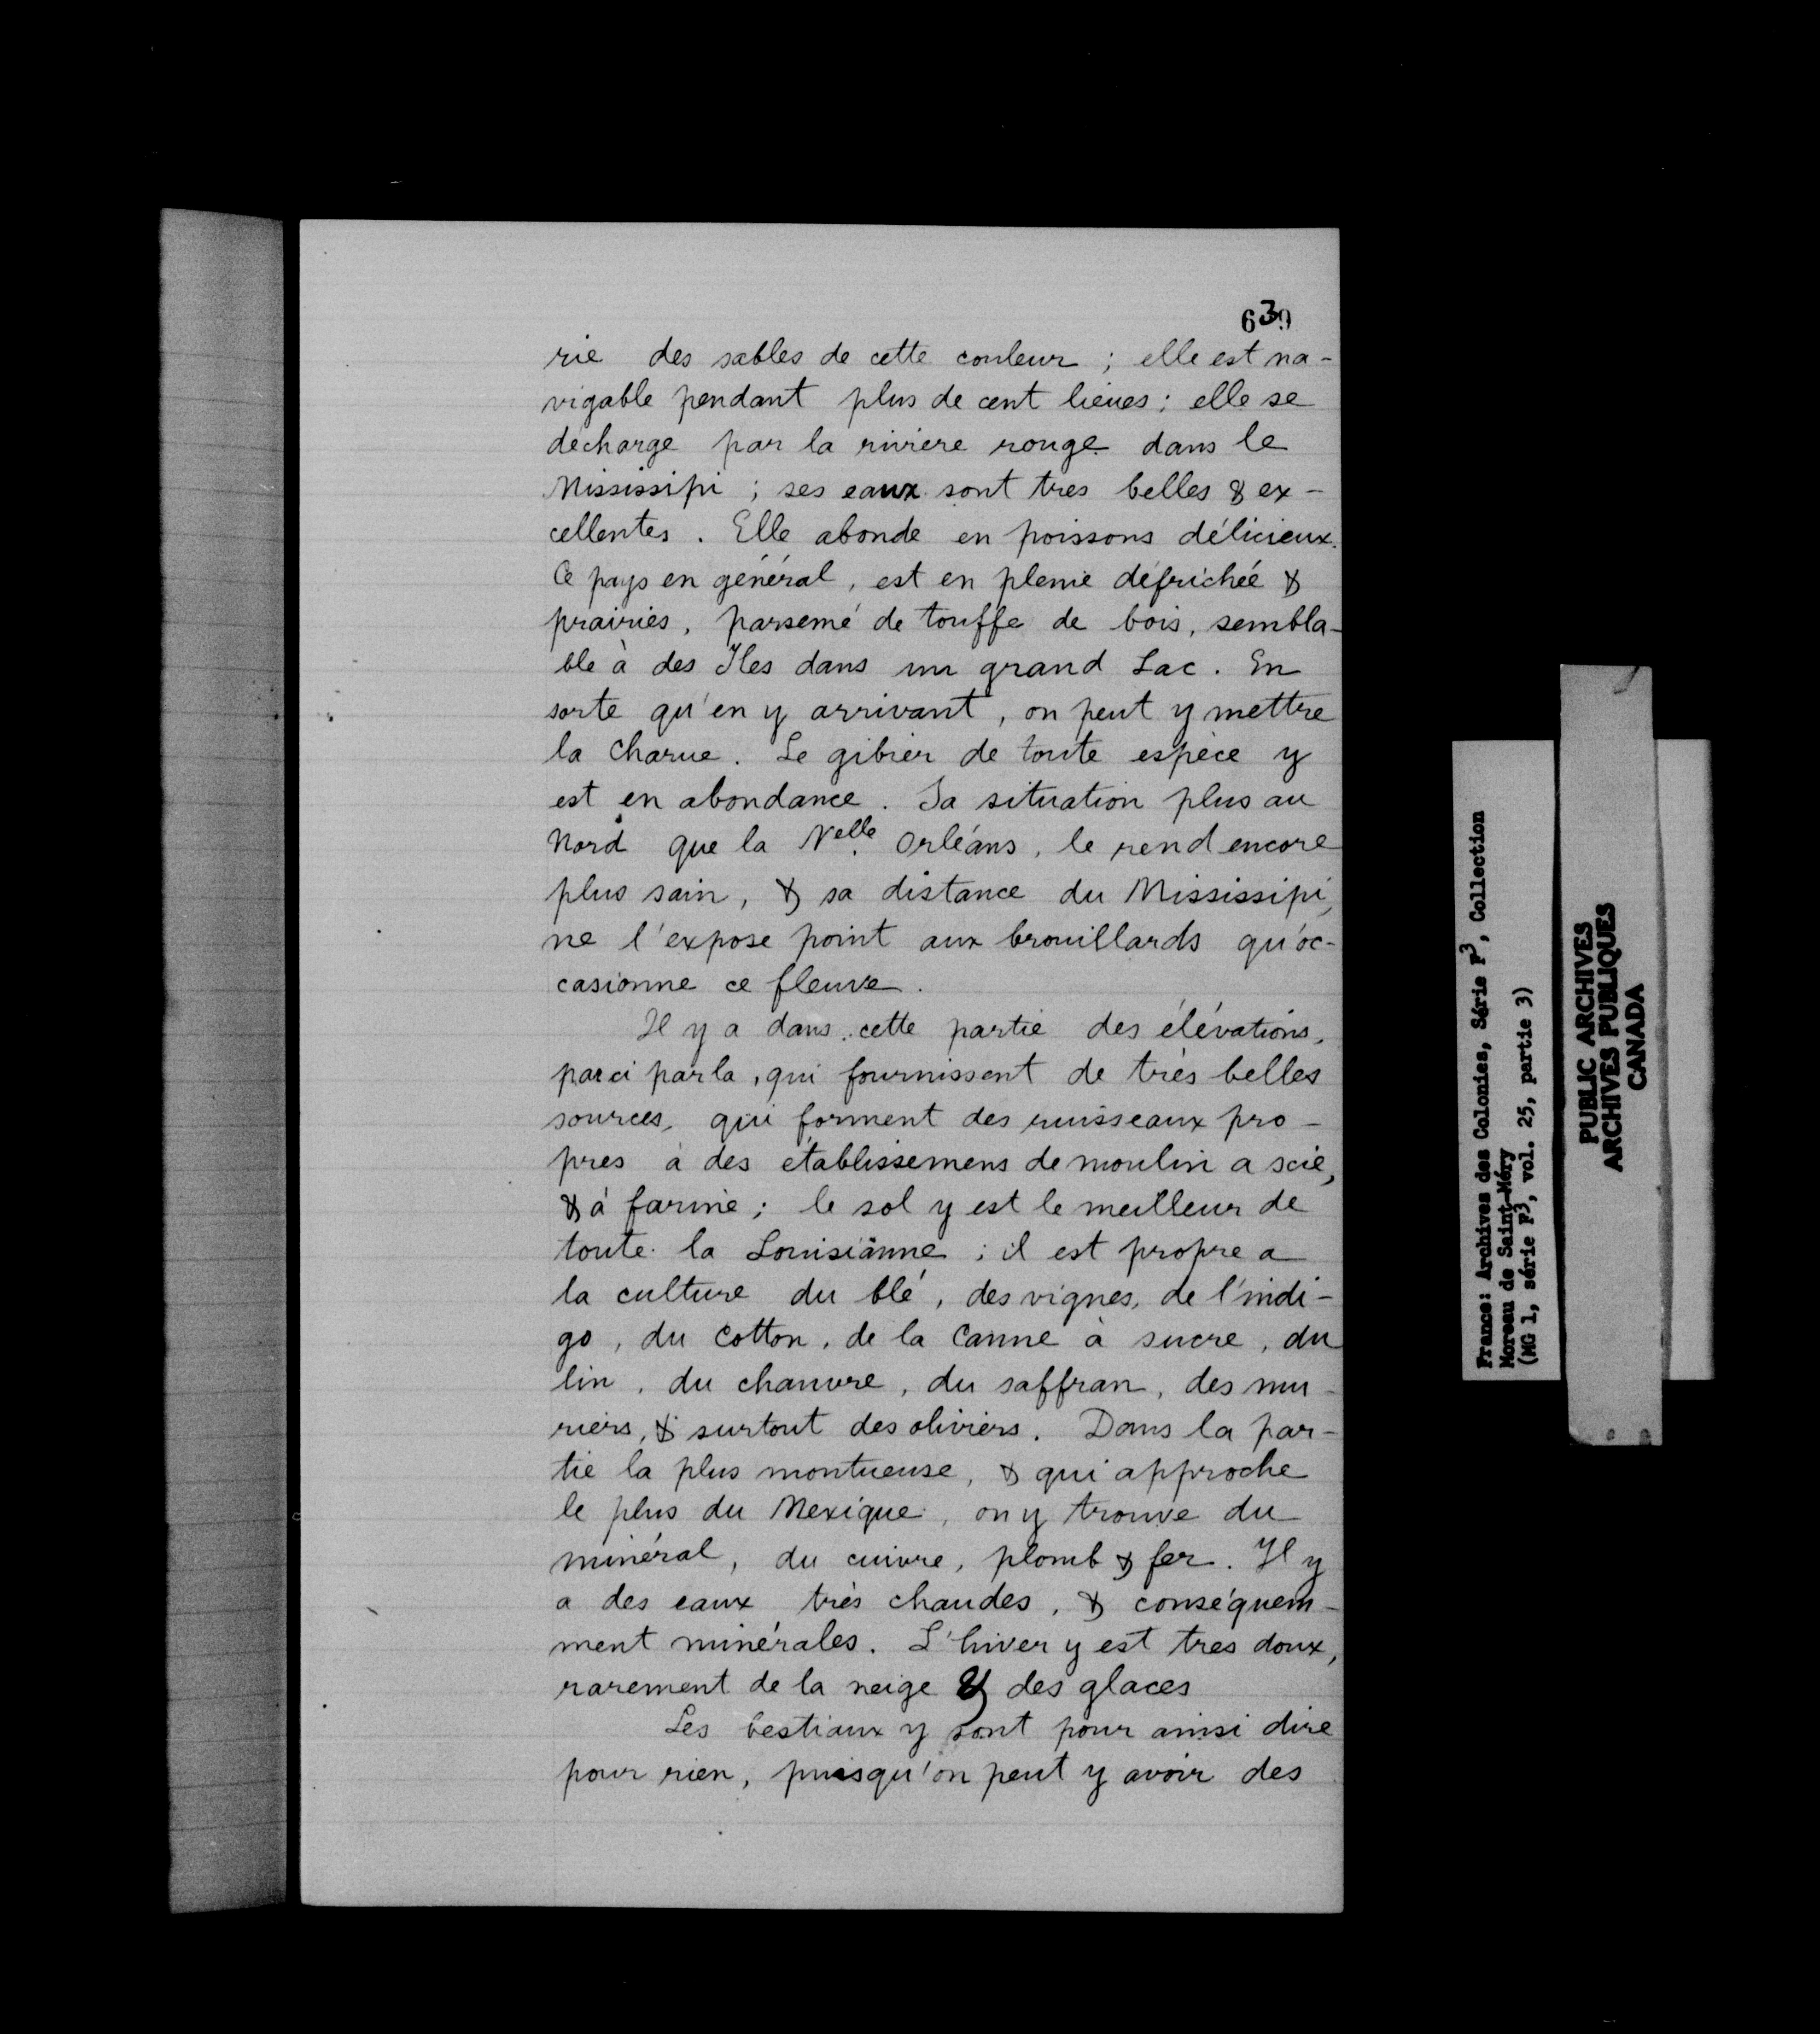 639
rie des sables de cette couleur ; elle est na-
vigable pendant plus de cent lieues ; elle se
décharge par la riviere rouge dans le
Mississipi ; ses eaux sont tres belles & ex-
cellentes. Elle abonde en poissons délicieux.
Ce pays en général, est en pleine défrichée &
prairies, parsemé de touffe de bois, sembla-
ble à des Iles dans un grand Lac. En
sorte qu'en y arrivant, on peut y mettre
la charue. Le gibier de toute espèce y
est en abondance. Sa situation plus au
Nord que la Nelle Orléans, le rend encore
plus sain, & sa distance du Mississipi,
ne l'expose point aux brouillards qu'oc-
casionne ce fleuve.
Il y a dans cette partie des élévations,
parci parla, qui fournissent de très belles
sources, qui forment des ruisseaux pro-
pres à des établissemens de moulin a scie,
& à farine ; le sol y est le meilleur de
toute la Louisianne ; il est propre a
la culture du blé, des vignes, de l'indi-
go, du Cotton, de la Canne à sucre, du
lin, du chanvre, du saffran, des mu-
riers, & surtout des oliviers. Dans la par-
tie la plus montueuse, & qui approche
le plus du Mexique, on y trouve du
minéral, du cuivre, plomb & fer. Il y
a des eaux très chaudes, & conséquem-
ment minérales. L'hiver y est tres doux,
rarement de la neige & des glaces
Les bestiaux y sont pour ainsi dire
pour rien, puisqu'on peut y avoir des
France: Archives des Colonies, Série F3, Collection
Moreau de Saint-Méry
(MG 1, série F3, vol. 25, partie 3)
PUBLIC ARCHIVES
ARCHIVES PUBLIQUES
CANADA